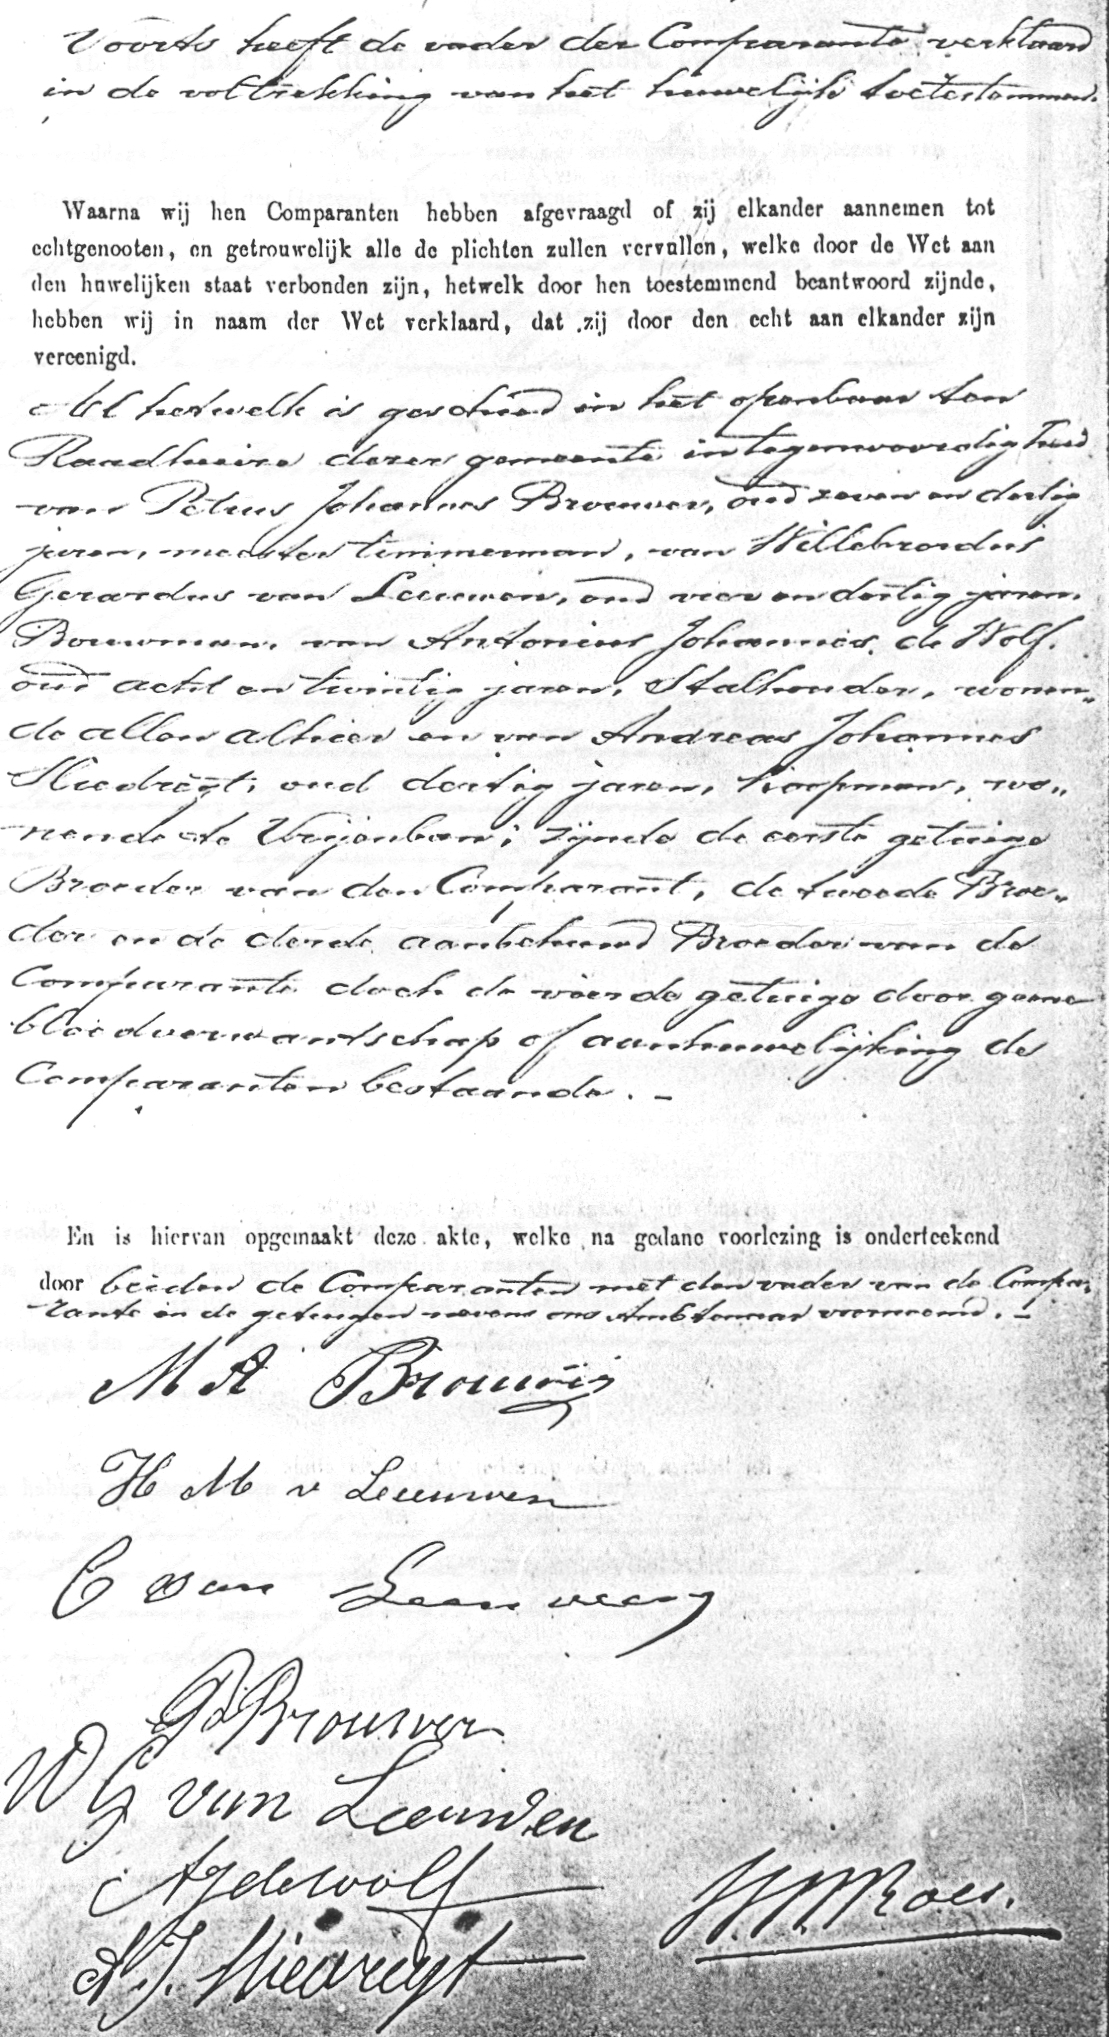 Voorts heeft de vader der Comparante verklaard
in de voltrekking van het huwelijk toetestemmen.
Waarna wij hen Comparanten hebben afgevraagd of zij elkander aannemen tot
echtgenooten, en getrouwelijk alle de plichten zullen vervullen, welke door de Wet aan
den huwelijken staat verbonden zijn, hetwelk door hen toestemmend beantwoord zijnde,
hebben wij in naam der Wet verklaard, dat zij door den echt aan elkander zijn
vereenigd.
Al hetwelk is geschied in het openbaar ten
Raadhuize dezer gemeente in tegenwoordigheid
van Petrus Johannes Brouwer, oud zeven en dertig
jaren, meester timmerman, van Willebrordus
Gerardus van Leeuwen, oud vier en dertig jaren,
Bouwman, van Antonius Johannes de Wolf,
oud acht en twintig jaren, Stalhouder, wonen„
de allen alhier en van Andreas Johannes
Sliedregt, oud dertig jaren, Koopman, wo„
nende te Vrijenban; zijnde de eerste getuige
Broeder van den Comparant, de tweede Broe„
der en de derde aanbehuwd Broeder van de
Comparante doch de vierde getuige door geene
bloedverwantschap of aanhuwelijking de
Comparanten bestaande. -
En is hiervan opgemaakt deze akte, welke na gedane voorlezing is onderteekend
door beiden de Comparanten met den vader van de Compa„
rante en de getuigen nevens ons Ambtenaar voornoemd. -
M A Brouwer
H M v Leeuwen
C van Leeuwen
P J Brouwer
W G van Leeuwen
A J de Wolf
A. J. Sliedregt